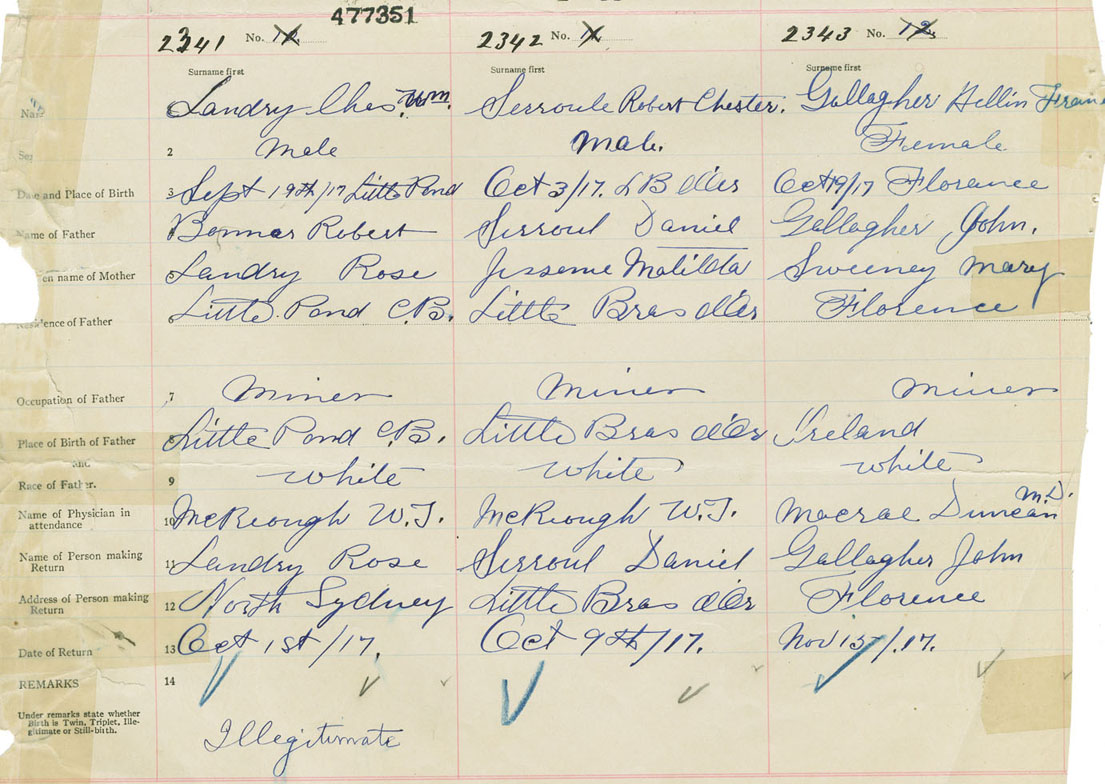 477351
2341 No. 10 2342 No. 11 2343 No. 12
Surname first Surname first Surname first
Landry Chas. Wm. Serroule Robert Chester. Gallagher Hellin Fran
2 Male Male. Female
Date and Place of Birth 3 Sept 19th/17 Little Pond Oct 3/17. L B d'Or Oct 19/17 Florence
Name of Father Bonnar Robert Serroul Daniel Gallagher John.
en name of Mother Landry Rose Jesseme Matilda Sweeney Mary
Residence of Father 6 Little Pond C.B. Little Bras d'Or Florence
Occupation of Father 7 Miner Miner Miner
Place of Birth of Father 8 Little Pond C.B. Little Bras d'Or Ireland
and
Race of Father. 9 White White White
Name of Physician in attendance 10 McKeough W.J. McKeough W.J. Macrae Duncan M.D.
Name of Person making Return 11 Landry Rose Serroul Daniel Gallagher John
Address of Person making Return 12 North Sydney Little Bras d'Or Florence
Date of Return 13 Oct 1st/17. Oct 9th/17. Nov 15/17.
REMARKS 14
Under remarks state whether
Birth is Twin, Triplet, Ille-
gitimate or Still-birth.
Illegitimate